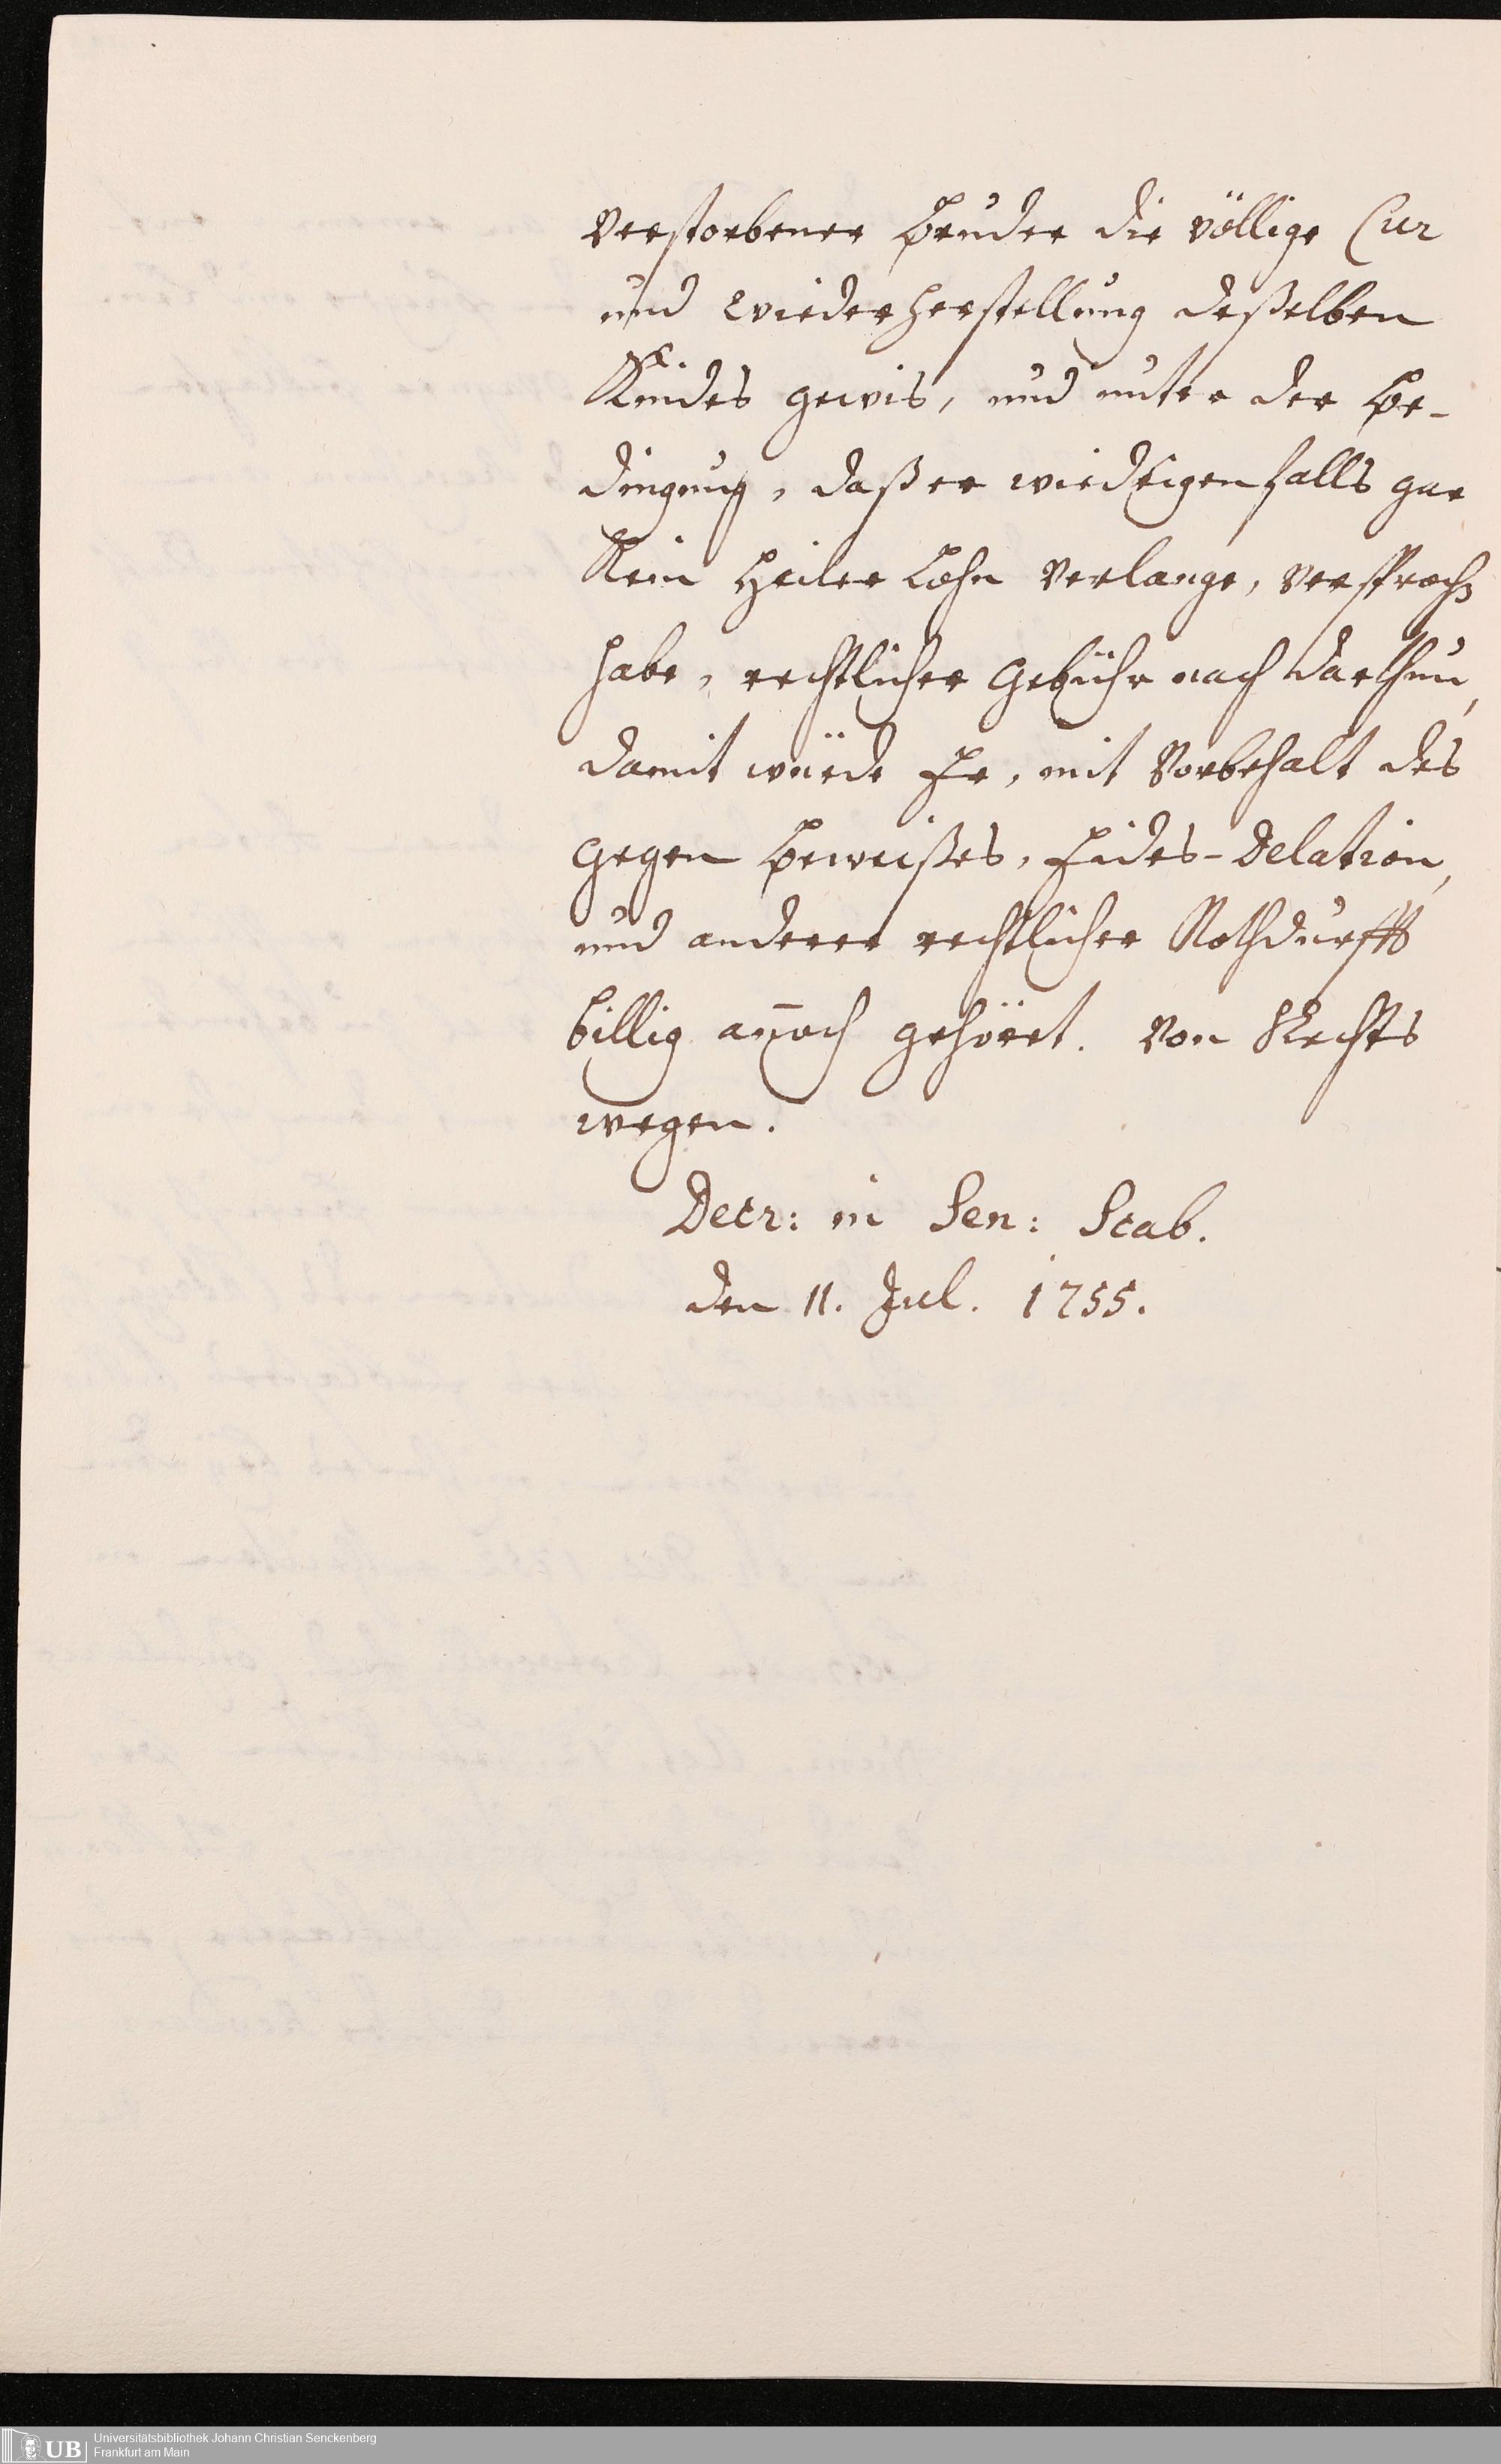 verstorbener Bruder die völlige Cur
und Wiederherstellung deßelben
Kindes gewis, und unter der Be-
dingung, daß er wiedrigenfalls gar
Kein Heiler Lohn verlange, versprochen
habe, rechtlicher Gebühr nach darthun,
damit würde Er, mit Vorbehalt des
gegen Beweißes, Eides-Delation,
und anderer rechtlicher Nothdurfft
billig annoch gehöret. Von Rechts
wegen.
Decr: in Sen: Scab.
den 11. Jul. 1755.
UB
Universitätsbibliothek Johann Christian Senckenberg
Frankfurt am Main